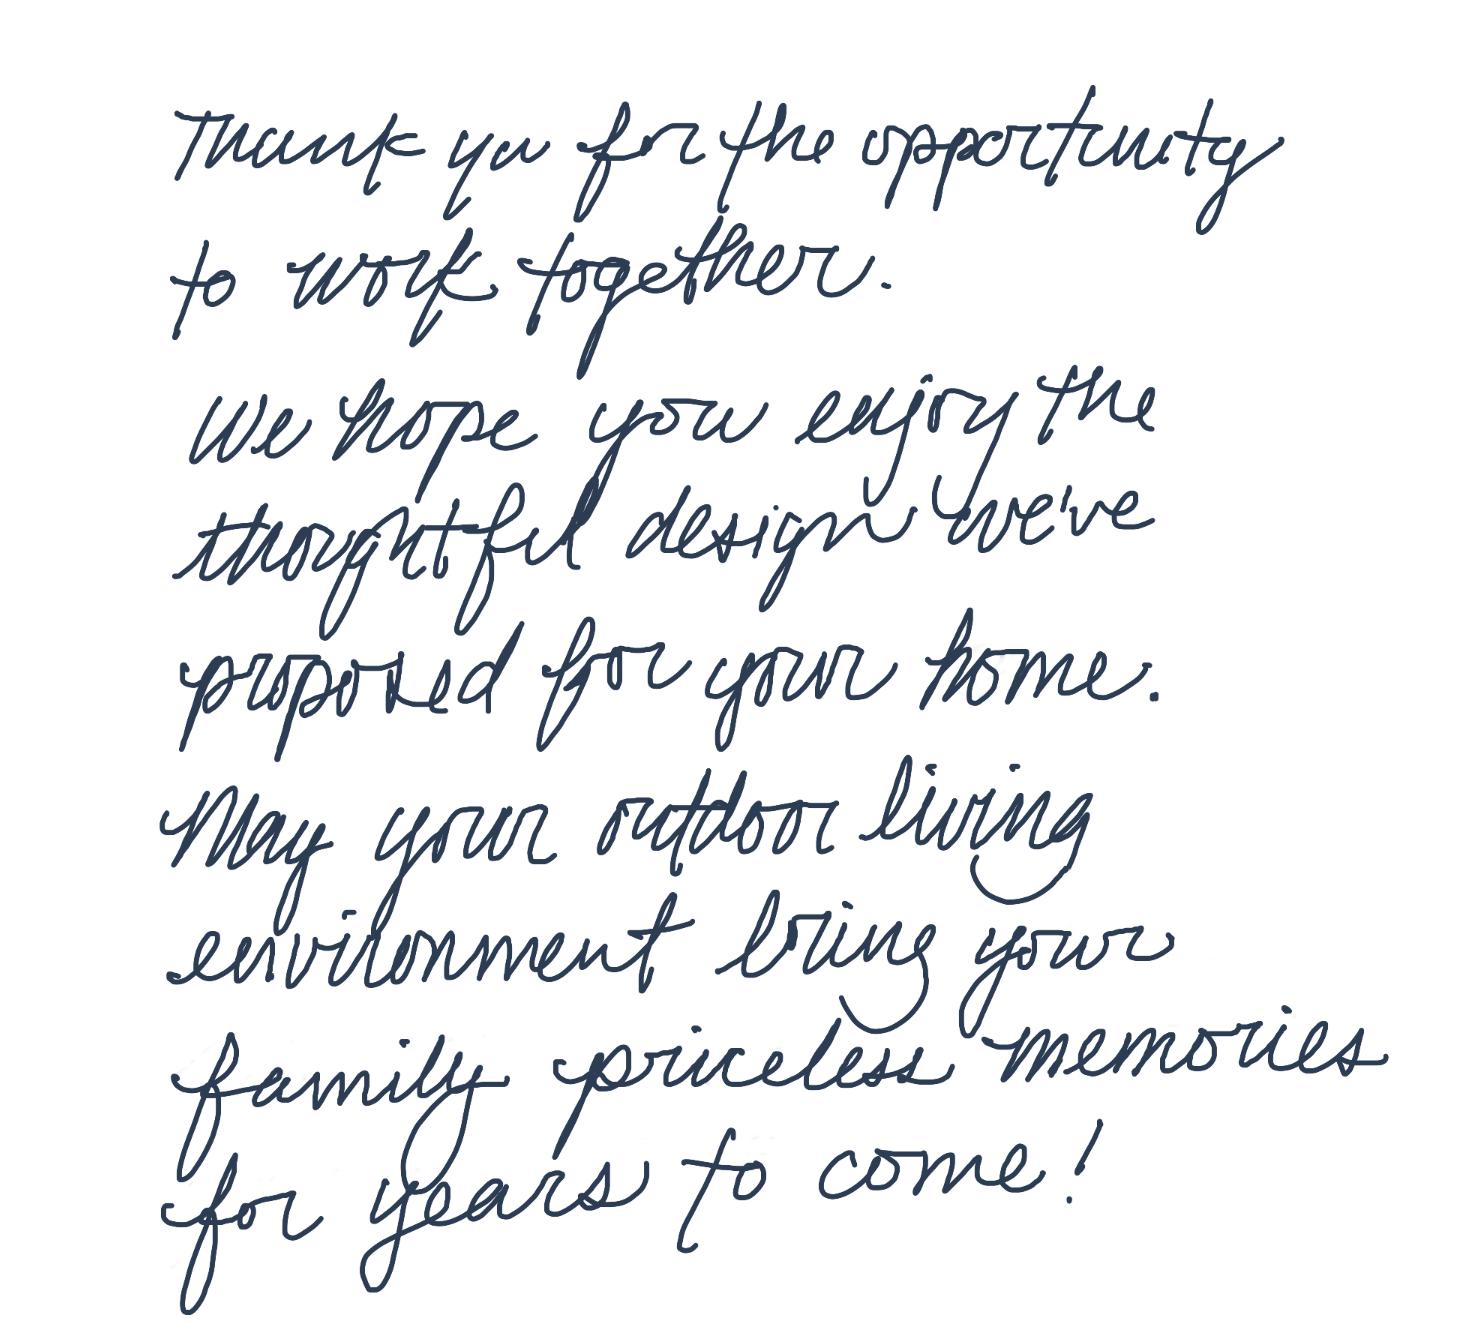 Thank you for the opportunity
to work together.
We hope you enjoy the
thoughtful design we've
proposed for your home.
May your outdoor living
environment bring your
family priceless memories
for years to come!